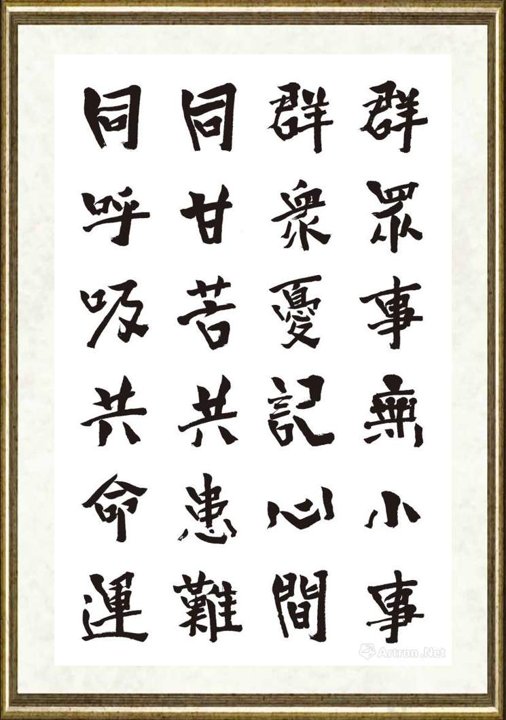 群眾事無小事
群衆憂記心間
同甘苦共患難
同呼吸共命運
Artron.Net